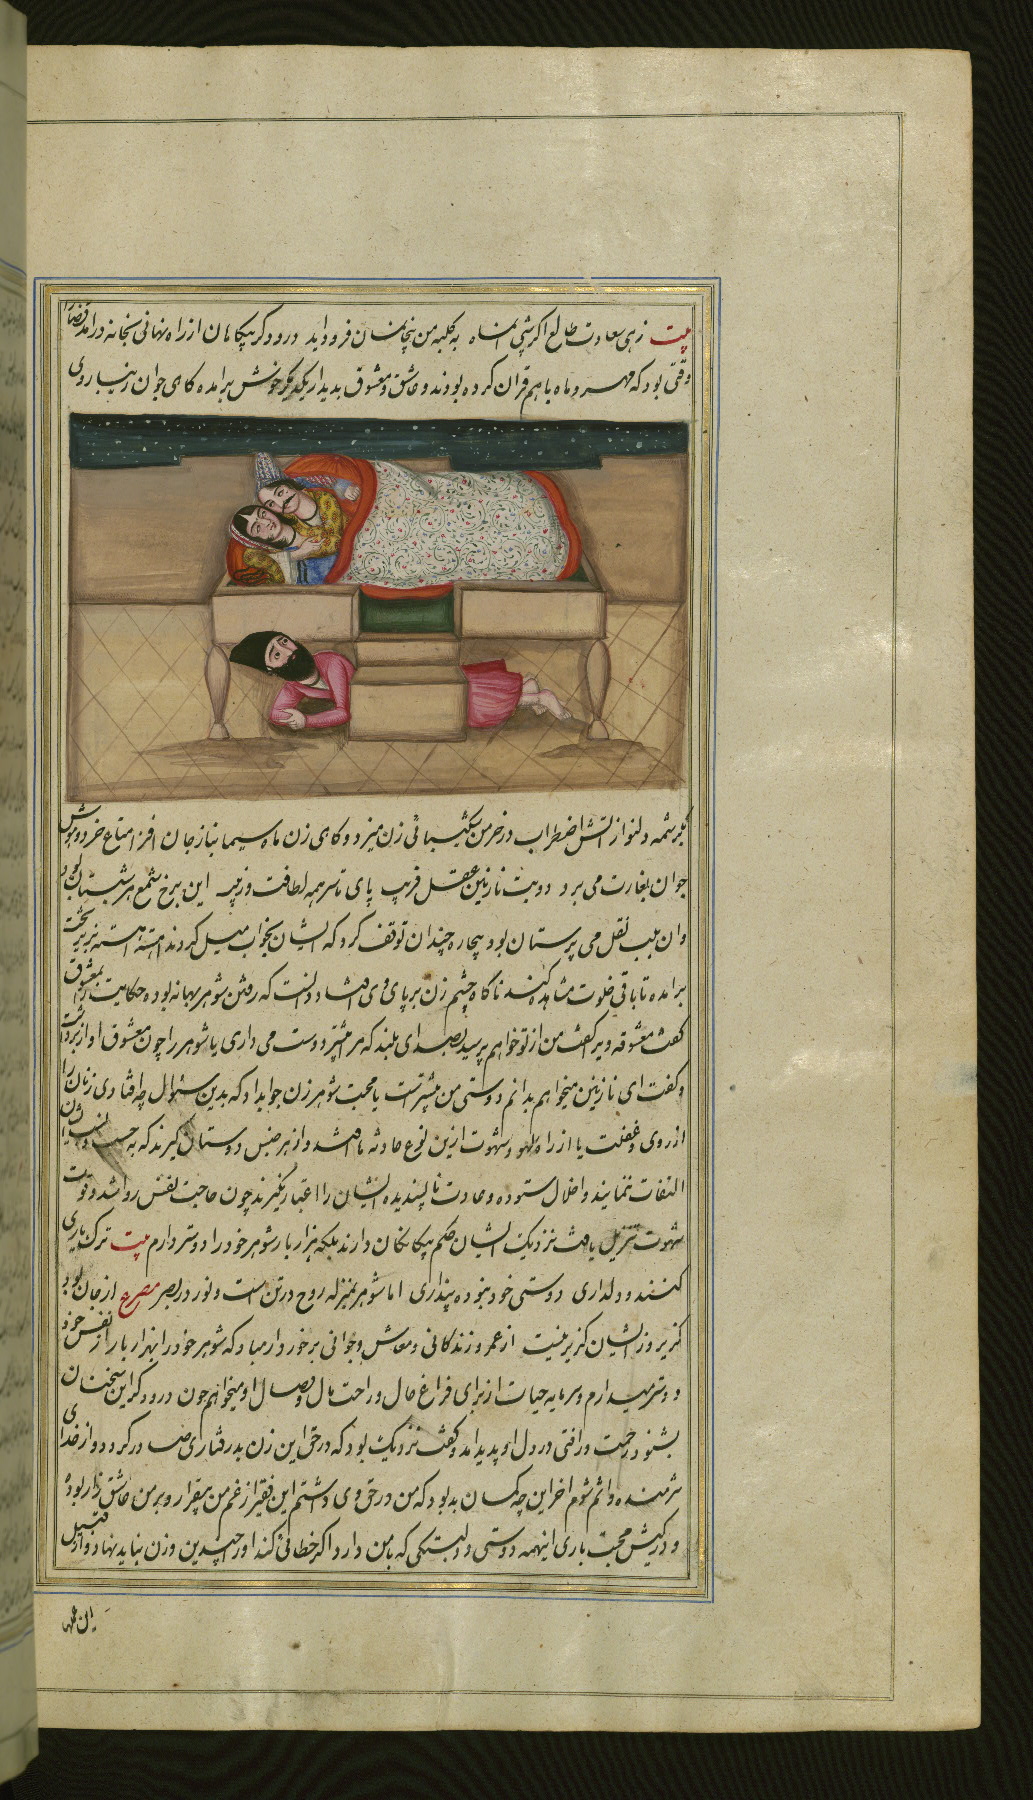 بیت زهی سعادت طالع اگر شبی آنماه به کلبه من بیخانمان فرود آید درودگر بیگاهان از راه نهانی بخانه درآمد قضارا
وقتی بود که مهر و ماه با هم قران کرده بودند و عاشق و معشوق بدیدار یکدیگر خوش برامده گاه ای جوان زیبا روی
بکرشمه دلنواز آتش اضطراب در خرمن شکیبائی زن میزد و گاه ای زن ماه سیما بناز جان افزا متاع خرد و هوش
جوان بغارت می برد دو بت نازنین عقل فریب پای تا سر همه لطافت و زیب این برخ شمع هر شبستان بود
وان بلب نقل می پرستان بود بیچاره چندان توقف کرد که ایشان بخواب میل کردند آهسته آهسته بزیر تخت
برامده تا باقی خلوت مشاهده کند ناگاه چشم زن بر پای وی افتاد دانست که رفتن شوهر بهانه بوده حکایت با معشوق
گفت معشوقه ویر گفت من از تو خواهم پرسید بصدای بلند که مر بیشتر دوست می داری یا شوهر را چون معشوق آواز برداشت
و گفت ای نازنین میخواهم بدانم دوستی من بیشترست یا محبت شوهر زن جوابداد که بدین سئوال چه افتادی زنان را
از روی غفلت یا از راه لهو و شهوت ازین نوع حادثه ها افتد و از هر جنس دوستان گیرند که به حسب و نسب ایشان
التفات ننمایند و اخلال ستوده و عادت ناپسندیده ایشان را اعتبار نگیرند چون حاجت نفس روا شد و قوت
شهوت تنزیل یافت نزدیک ایشان حکم بیگانگان دارند بلکه هزار بار شوهر خود را دوستر دارم بیت ترک یاری
کنند و دلداری دوستی خود نبوده پنداری اما شوهر بمنزله روح در تن است و نور در بصر مصرع از جان بود
گزیر و ز ایشان گزیر نیست از عمر و زندگانی و معاش و جوانی برخوردار مباد که شوهر خود را بهزار بار از نفس خود
دوستر میدارم و سرمایه حیات از برای فراغ حال و راحت مال و وصال او میخواهم چون درودگر این سخنان
بشنود رحمت و رافتی در دل او پدید امد و گفت نزدیک بود که در حق این زن بد رفتاری صادر گردد و از خدای
شرمنده و آثم شوم اخر این چه گمان بد بود که من در حق وی داشتم این فقیر از غم من بیقرار و بر من عاشق زار بوده
و در کیش محبت باری اینهمه دوستی و دلبستگی که با من دارد اگر خطائی کند اورا چندین وزن نباید نهاد و از قبیل
این عملها